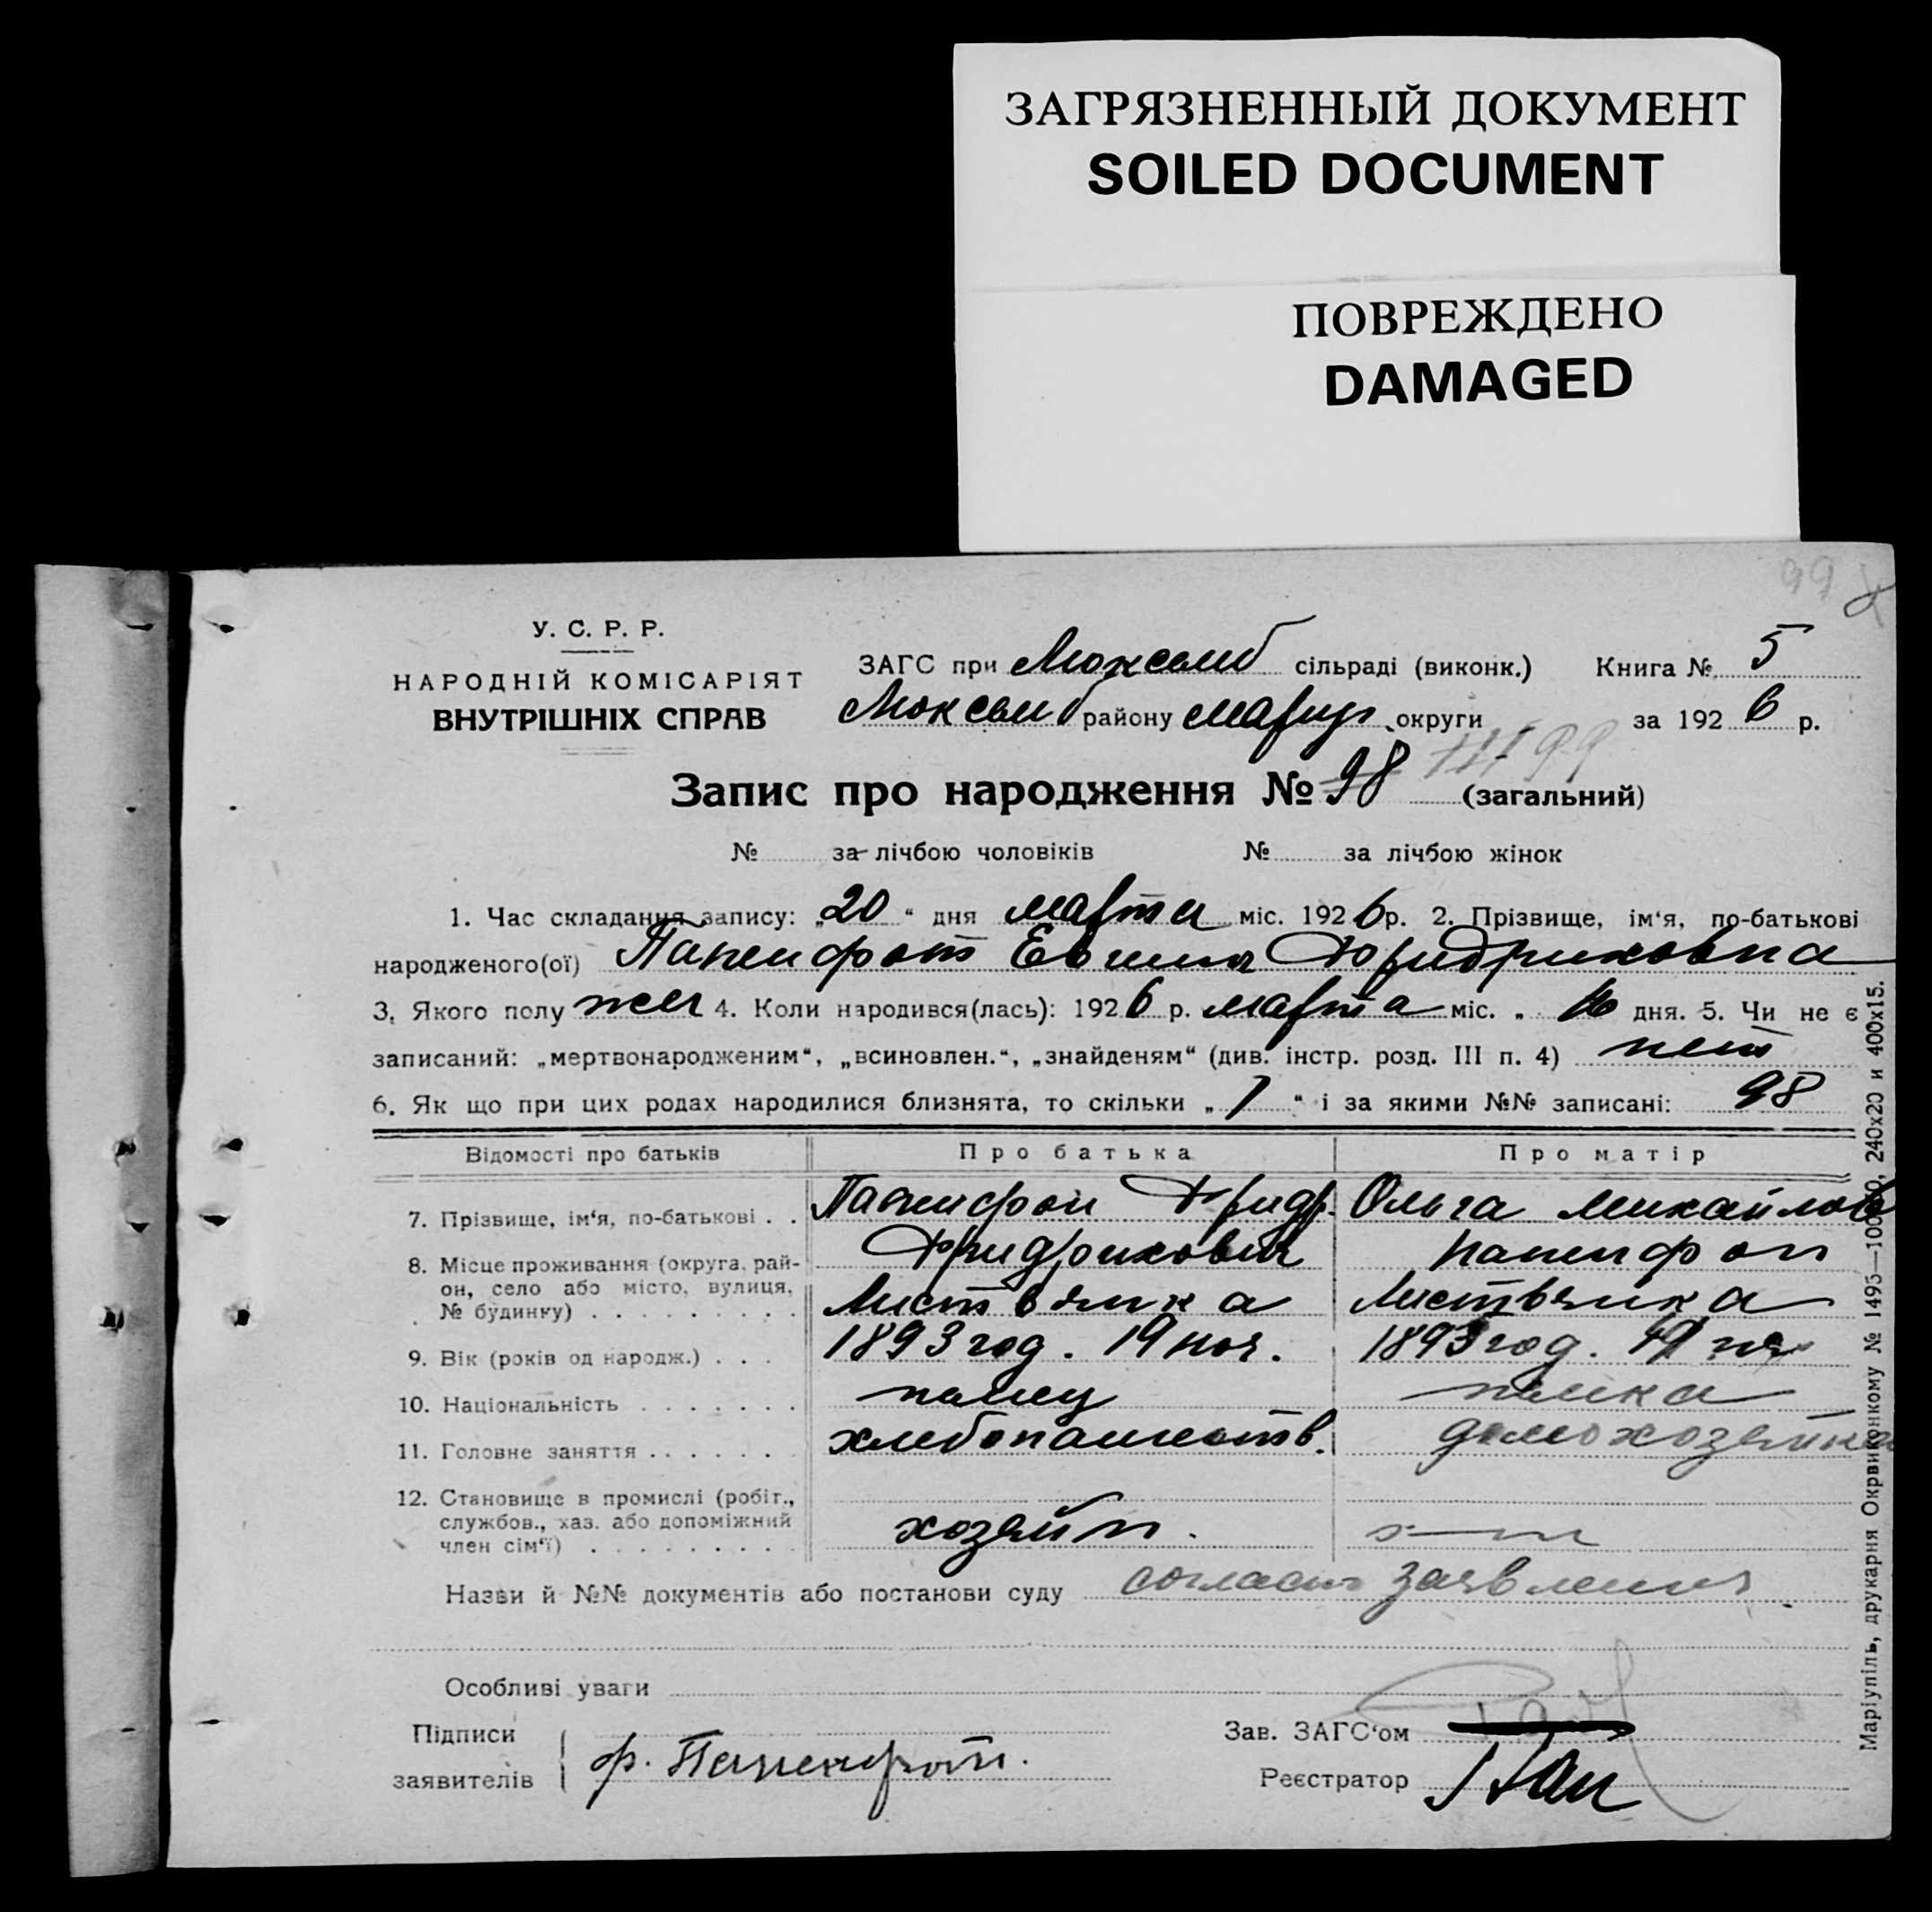 ЗАГРЯЗНЕННЫЙ ДОКУМЕНТ
SOILED DOCUMENT
ПОВРЕЖДЕНО
DAMAGED
99
У. С. Р. Р.
НАРОДНІЙ КОМІСАРІЯТ
ВНУТРІШНІХ СПРАВ
ЗАГС при Люксемб сільраді (виконк.) Книга № 5
Люксемб району Мариуп. округи за 1926 р.
Запис про народження № 98 99 (загальний)
№ за лічбою чоловіків № за лічбою жінок
1. Час складання запису: „20“ дня марта міс. 1926 р. 2. Прізвище, ім‘я, по-батькові
народженого(ої) Папенфот Фридриховна
3. Якого полу жен 4. Коли народився(лась): 1926 р. марта міс. „ дня. 5. Чи не є
записаний: „мертвонародженим“, „всиновлен.“, „знайденям“ (див. інстр. розд. III п. 4) нет
6. Як що при цих родах народилися близнята, то скільки „1“ і за якими №№ записані: 98
Відомості про батьків Про батька Про матір
7. Прізвище, ім‘я, по-батькові . . Фридр. Ольга Михайлов
Фридрихович Папенфот
8. Місце проживання (округа, рай-
он, село або місто, вулиця,
№ будинку) . . . . . . . . . Листвянка Листвянка
9. Вік (років од народж.) . . . 1893 год. 19 ноя. 1893 год.
10. Національність . . . . . . . немец немка
11. Головне заняття . . . . . . хлебопашеств. домохозяйка
12. Становище в промислі (робіт.,
службов., хаз. або допоміжний
член сім‘ї) . . . . . . . . . хозяйн.
Назви й №№ документів або постанови суду согласно заявления
Особливі уваги
Підписи
заявителів ф. Папенфот.
Зав. ЗАГС‘ом
Реєстратор
Маріупіль, друкарня Окрвиконкому № 1495—100 0, 240х20 и 400х15.